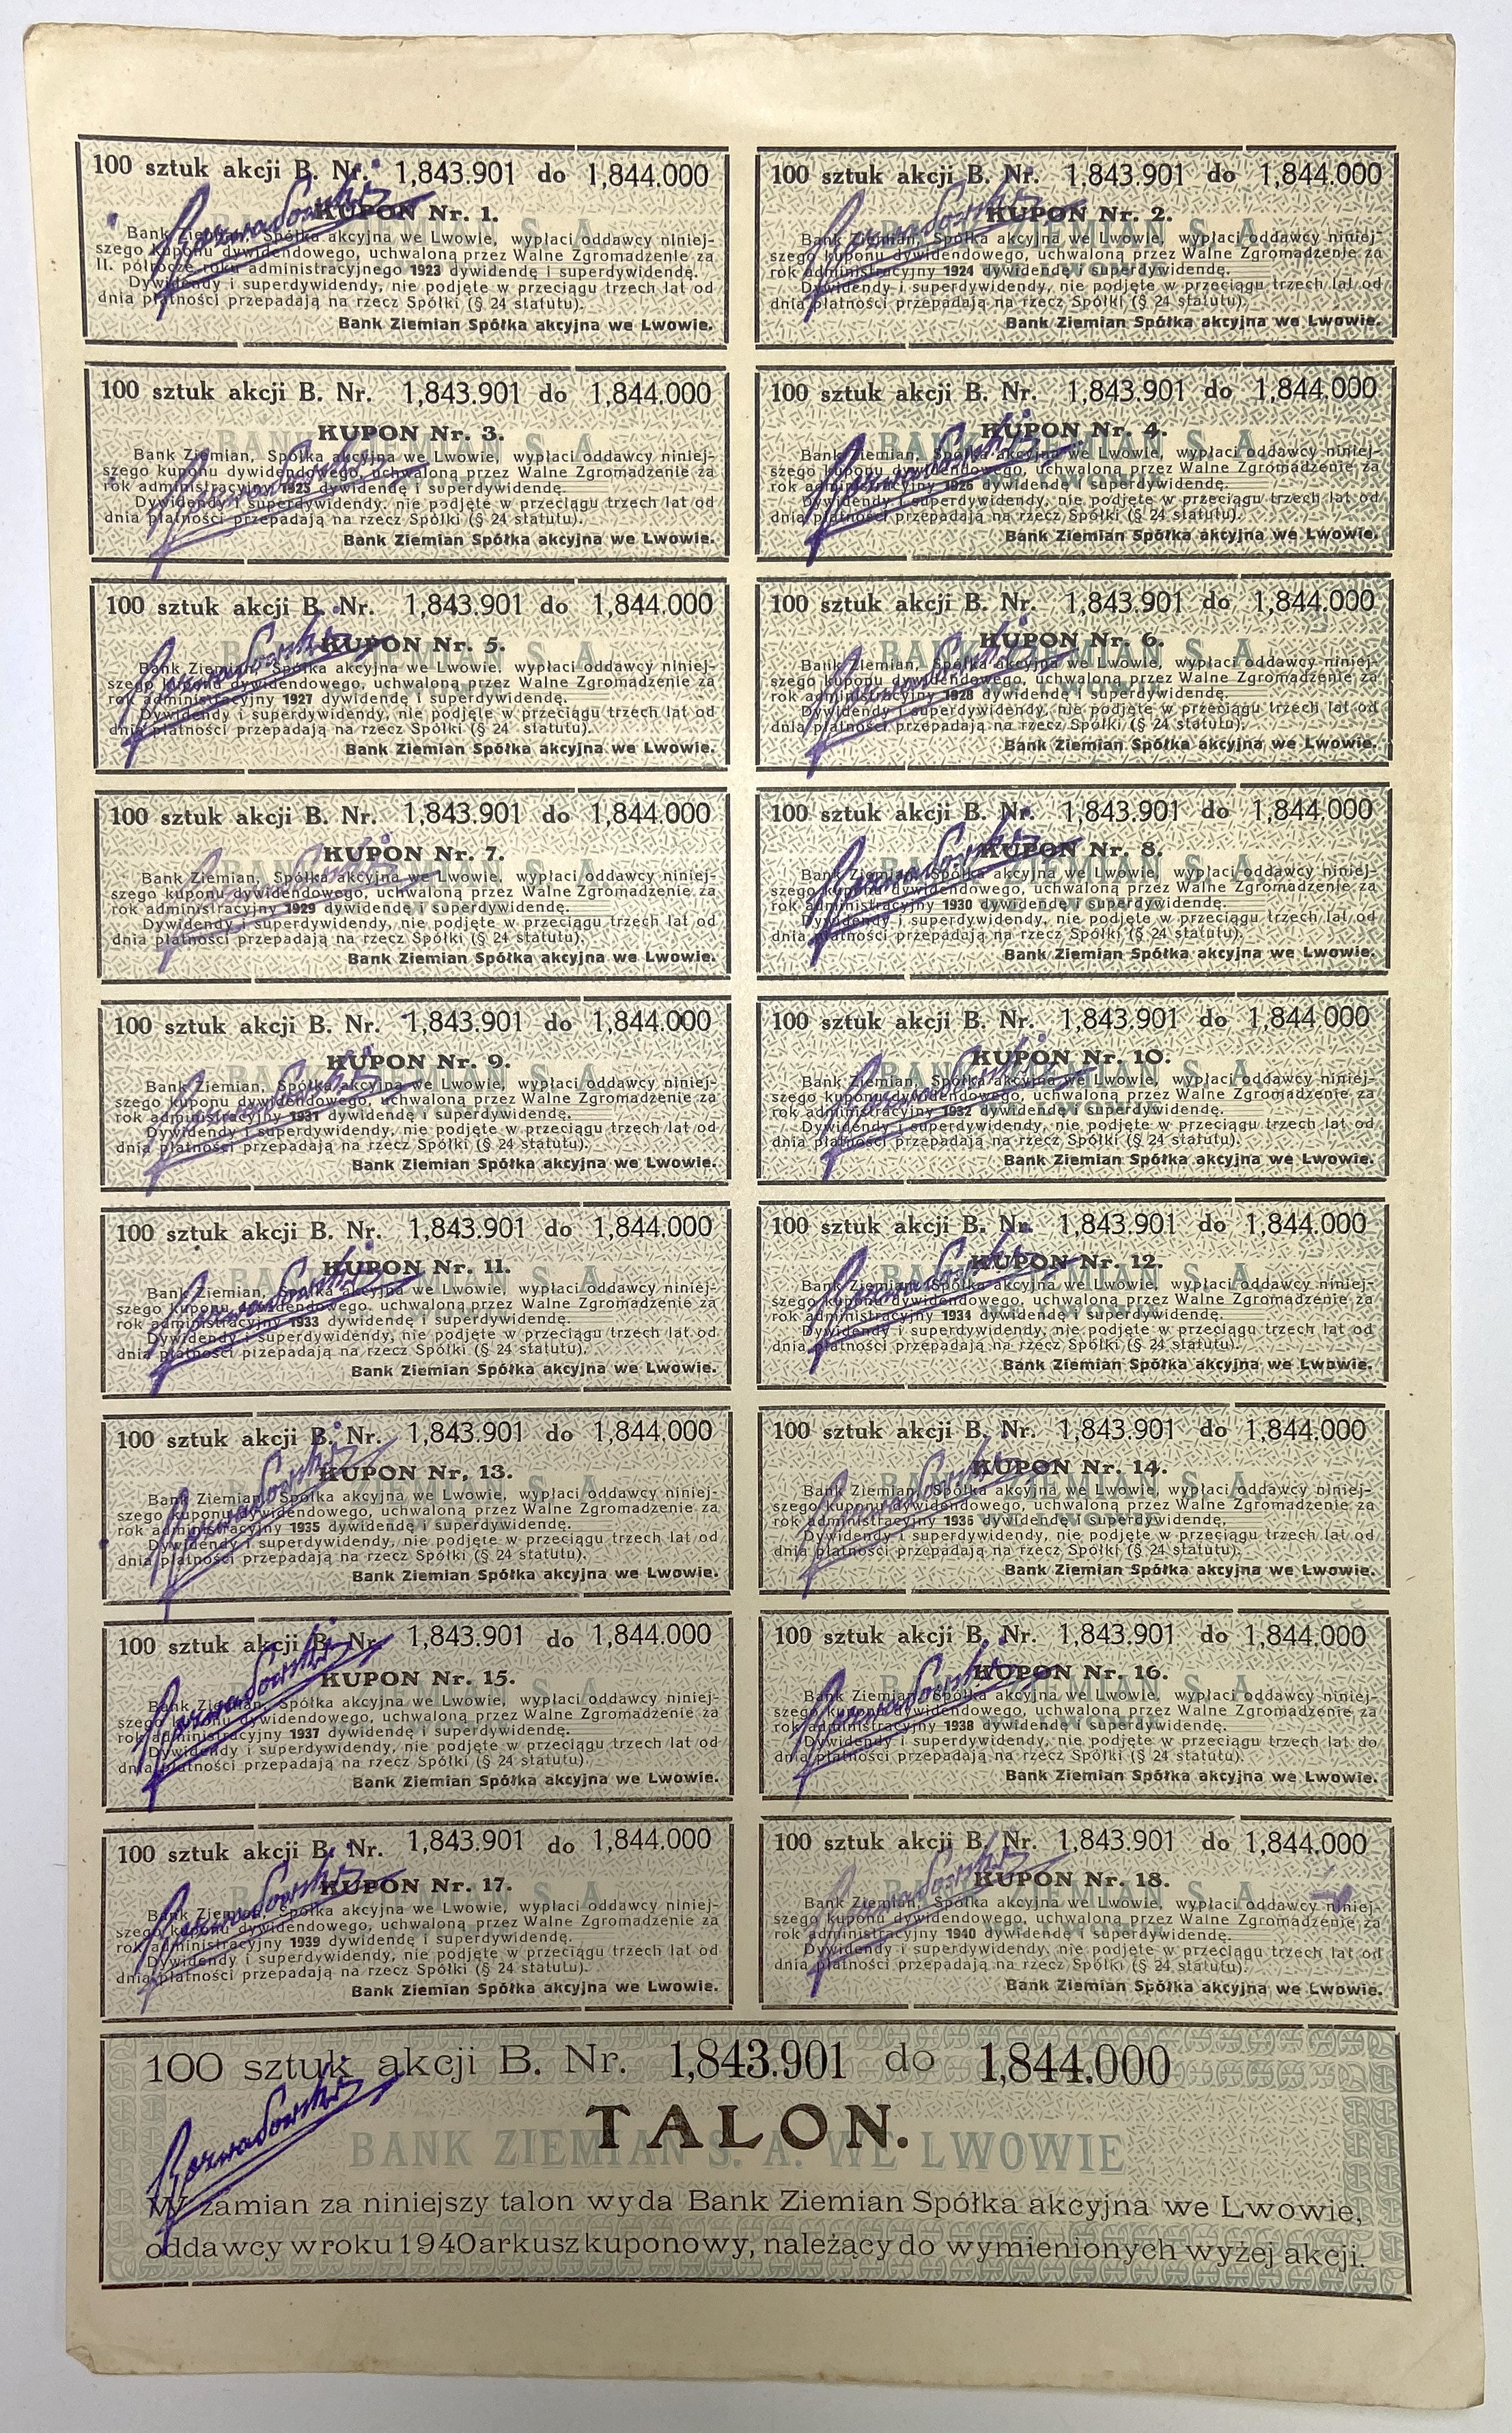 100 sztuk akcji B. Nr. 1,843.901 do 1,844.000
KUPON Nr. 1.
BANK ZIEMIAN S. A.
Bank Ziemian, Spółka akcyjna we Lwowie, wypłaci oddawcy niniej-
szego kuponu dywidendowego, uchwaloną przez Walne Zgromadzenie za
II. półrocze roku administracyjnego 1923 dywidendę i superdywidendę.
Dywidendy i superdywidendy, nie podjęte w przeciągu trzech lat od
dnia płatności przepadają na rzecz Spółki (§ 24 statutu).
Bank Ziemian Spółka akcyjna we Lwowie.
100 sztuk akcji B. Nr. 1,843.901 do 1,844.000
KUPON Nr. 2.
BANK ZIEMIAN S. A.
Bank Ziemian, Spółka akcyjna we Lwowie, wypłaci oddawcy niniej-
szego kuponu dywidendowego, uchwaloną przez Walne Zgromadzenie za
rok administracyjny 1924 dywidendę i superdywidendę.
Dywidendy i superdywidendy, nie podjęte w przeciągu trzech lat od
dnia płatności przepadają na rzecz Spółki (§ 24 statutu).
Bank Ziemian Spółka akcyjna we Lwowie.
100 sztuk akcji B. Nr. 1,843.901 do 1,844.000
KUPON Nr. 3.
BANK ZIEMIAN S. A.
Bank Ziemian, Spółka akcyjna we Lwowie, wypłaci oddawcy niniej-
szego kuponu dywidendowego, uchwaloną przez Walne Zgromadzenie za
rok administracyjny 1925 dywidendę i superdywidendę
Dywidendy i superdywidendy, nie podjęte w przeciągu trzech lat od
dnia płatności przepadają na rzecz Spółki (§ 24 statutu).
Bank Ziemian Spółka akcyjna we Lwowie.
100 sztuk akcji B. Nr. 1,843.901 do 1,844.000
KUPON Nr. 4.
BANK ZIEMIAN S. A.
WE LWOWIE
Bank Ziemian, Spółka akcyjna we Lwowie, wypłaci oddawcy niniej-
szego kuponu dywidendowego, uchwaloną przez Walne Zgromadzenie za
rok administracyjny 1926 dywidendę i superdywidendę.
Dywidendy i superdywidendy, nie podjęte w przeciągu trzech lat od
dnia płatności przepadają na rzecz Spółki (§ 24 statutu).
Bank Ziemian Spółka akcyjna we Lwowie.
100 sztuk akcji B. Nr. 1,843.901 do 1,844.000
KUPON Nr. 5.
BANK ZIEMIAN S. A.
Bank Ziemian, Spółka akcyjna we Lwowie, wypłaci oddawcy niniej-
szego kuponu dywidendowego, uchwaloną przez Walne Zgromadzenie za
rok administracyjny 1927 dywidendę i superdywidendę.
Dywidendy i superdywidendy, nie podjęte w przeciągu trzech lat od
dnia płatności przepadają na rzecz Spółki (§ 24 statutu).
Bank Ziemian Spółka akcyjna we Lwowie.
100 sztuk akcji B. Nr. 1,843.901 do 1,844.000
KUPON Nr. 6.
BANK ZIEMIAN S. A.
WE LWOWIE
Bank Ziemian, Spółka akcyjna we Lwowie, wypłaci oddawcy niniej-
szego kuponu dywidendowego, uchwaloną przez Walne Zgromadzenie za
rok administracyjny 1928 dywidendę i superdywidendę.
Dywidendy i superdywidendy, nie podjęte w przeciągu trzech lat od
dnia płatności przepadają na rzecz Spółki (§ 24 statutu).
Bank Ziemian Spółka akcyjna we Lwowie.
100 sztuk akcji B. Nr. 1,843.901 do 1,844.000
KUPON Nr. 7.
BANK ZIEMIAN S. A.
Bank Ziemian, Spółka akcyjna we Lwowie, wypłaci oddawcy niniej-
szego kuponu dywidendowego, uchwaloną przez Walne Zgromadzenie za
rok administracyjny 1929 dywidendę i superdywidendę.
Dywidendy i superdywidendy, nie podjęte w przeciągu trzech lat od
dnia płatności przepadają na rzecz Spółki (§ 24 statutu).
Bank Ziemian Spółka akcyjna we Lwowie.
100 sztuk akcji B. Nr. 1,843.901 do 1,844.000
KUPON Nr. 8.
BANK ZIEMIAN S. A.
WE LWOWIE
Bank Ziemian, Spółka akcyjna we Lwowie, wypłaci oddawcy niniej-
szego kuponu dywidendowego, uchwaloną przez Walne Zgromadzenie za
rok administracyjny 1930 dywidendę i superdywidendę.
Dywidendy i superdywidendy, nie podjęte w przeciągu trzech lat od
dnia płatności przepadają na rzecz Spółki (§ 24 statutu).
Bank Ziemian Spółka akcyjna we Lwowie.
100 sztuk akcji B. Nr. 1,843.901 do 1,844.000
KUPON Nr. 9.
BANK ZIEMIAN S. A.
Bank Ziemian, Spółka akcyjna we Lwowie, wypłaci oddawcy niniej-
szego kuponu dywidendowego, uchwaloną przez Walne Zgromadzenie za
rok administracyjny 1931 dywidendę i superdywidendę.
Dywidendy i superdywidendy, nie podjęte w przeciągu trzech lat od
dnia płatności przepadają na rzecz Spółki (§ 24 statutu).
Bank Ziemian Spółka akcyjna we Lwowie.
100 sztuk akcji B. Nr. 1,843.901 do 1,844.000
KUPON Nr. 10.
BANK ZIEMIAN S. A.
WE LWOWIE
Bank Ziemian, Spółka akcyjna we Lwowie, wypłaci oddawcy niniej-
szego kuponu dywidendowego, uchwaloną przez Walne Zgromadzenie za
rok administracyjny 1932 dywidendę i superdywidendę.
Dywidendy i superdywidendy, nie podjęte w przeciągu trzech lat od
dnia płatności przepadają na rzecz Spółki (§ 24 statutu).
Bank Ziemian Spółka akcyjna we Lwowie.
100 sztuk akcji B. Nr. 1,843.901 do 1,844.000
KUPON Nr. 11.
BANK ZIEMIAN S. A.
Bank Ziemian, Spółka akcyjna we Lwowie, wypłaci oddawcy niniej-
szego kuponu dywidendowego, uchwaloną przez Walne Zgromadzenie za
rok administracyjny 1933 dywidendę i superdywidendę.
Dywidendy i superdywidendy, nie podjęte w przeciągu trzech lat od
dnia płatności pizepadają na rzecz Spółki (§ 24 statutu).
Bank Ziemian Spółka akcyjna we Lwowie.
100 sztuk akcji B. Nr. 1,843.901 do 1,844.000
KUPON Nr. 12.
BANK ZIEMIAN S. A.
WE LWOWIE
Bank Ziemian, Spółka akcyjna we Lwowie, wypłaci oddawcy niniej-
szego kuponu dywidendowego, uchwaloną przez Walne Zgromadzenie za
rok administracyjny 1934 dywidendę i superdywidendę.
Dywidendy i superdywidendy, nie podjęte w przeciągu trzech lat od
dnia płatności przepadają na rzecz Spółki (§ 24 statutu).
Bank Ziemian Spółka akcyjna we Lwowie.
100 sztuk akcji B. Nr. 1,843.901 do 1,844.000
KUPON Nr, 13.
BANK ZIEMIAN S. A.
Bank Ziemian, Spółka akcyjna we Lwowie, wypłaci oddawcy niniej-
szego kuponu dywidendowego, uchwaloną przez Walne Zgromadzenie za
rok administracyjny 1935 dywidendę i superdywidendę.
Dywidendy i superdywidendy, nie podjęte w przeciągu trzech lat od
dnia płatności przepadają na rzecz Spółki (§ 24 statutu).
Bank Ziemian Spółka akcyjna we Lwowie.
100 sztuk akcji B. Nr. 1,843.901 do 1,844.000
KUPON Nr. 14.
BANK ZIEMIAN S. A.
WE LWOWIE
Bank Ziemian, Spółka akcyjna we Lwowie, wypłaci oddawcy niniej-
szego kuponu dywidendowego, uchwaloną przez Walne Zgromadzenie za
rok administracyjny 1936 dywidendę i superdywidendę,
Dywidendy i superdywidendy, nie podjęte w przeciągu trzech lat od
dnia płatności przepadają na rzecz Spółki (§ 24 statutu).
Bank Ziemian Spółka akcyjna we Lwowie.
100 sztuk akcji B. Nr. 1,843.901 do 1,844.000
KUPON Nr. 15.
BANK ZIEMIAN S. A.
Bank Ziemian, Spółka akcyjna we Lwowie, wypłaci oddawcy niniej-
szego kuponu dywidendowego, uchwaloną przez Walne Zgromadzenie za
rok administracyjny 1937 dywidendę i superdywidendę.
Dywidendy i superdywidendy, nie podjęte w przeciągu trzech lat od
dnia płatności przepadają na rzecz Spółki (§ 24 statutu).
Bank Ziemian Spółka akcyjna we Lwowie.
100 sztuk akcji B. Nr. 1,843.901 do 1,844.000
KUPON Nr. 16.
BANK ZIEMIAN S. A.
WE LWOWIE
Bank Ziemian, Spółka akcyjna we Lwowie, wypłaci oddawcy niniej-
szego kuponu dywidendowego, uchwaloną przez Walne Zgromadzenie za
rok administracyjny 1938 dywidendę i superdywidendę.
Dywidendy i superdywidendy, nie podjęte w przeciągu trzech lat do
dnia płatności przepadają na rzecz Spółki (§ 24 statutu).
Bank Ziemian Spółka akcyjna we Lwowie.
100 sztuk akcji B. Nr. 1,843.901 do 1,844.000
KUPON Nr. 17.
BANK ZIEMIAN S. A.
Bank Ziemian, Spółka akcyjna we Lwowie, wypłaci oddawcy niniej-
szego kuponu dywidendowego, uchwaloną przez Walne Zgromadzenie za
rok administracyjny 1939 dywidendę i superdywidendę.
Dywidendy i superdywidendy, nie podjęte w przeciągu trzech lat od
dnia płatności przepadają na rzecz Spółki (§ 24 statutu).
Bank Ziemian Spółka akcyjna we Lwowie.
100 sztuk akcji B. Nr. 1,843.901 do 1,844.000
KUPON Nr. 18.
BANK ZIEMIAN S. A.
Bank Ziemian, Spółka akcyjna we Lwowie, wypłaci oddawcy niniej-
szego kuponu dywidendowego, uchwaloną przez Walne Zgromadzenie za
rok administracyjny 1940 dywidendę i superdywidendę.
Dywidendy i superdywidendy, nie podjęte w przeciągu trzech lat od
dnia płatności przepadają na rzecz Spółki (§ 24 statutu).
Bank Ziemian Spółka akcyjna we Lwowie.
100 sztuk akcji B. Nr. 1,843.901 do 1,844.000
TALON.
BANK ZIEMIAN S. A. WE LWOWIE
W zamian za niniejszy talon wyda Bank Ziemian Spółka akcyjna we Lwowie,
oddawcy w roku 1940 arkusz kuponowy, należący do wymienionych wyżej akcji.